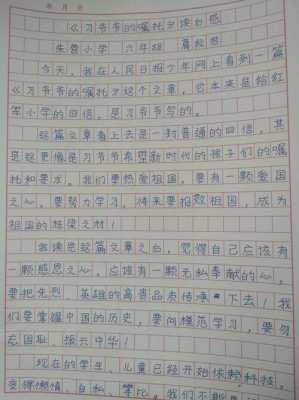 年 月 日
《习爷爷的嘱托》读后感
朱营小学 六年级
今天，我在人民日报少年网上看到一篇
《习爷爷的嘱托》这个文章，它本来是给红
军小学的回信，是习爷爷写的。
这篇文章看上去是一封普通的回信，其
是这更像是习爷爷希望新时代的孩子们的嘱
托和要求。我们要热爱祖国，要有一颗爱国
之心，要努力学习，将来要报效祖国，成为
祖国的栋梁之材！
我读完这篇文章之后，觉得自己应该有
一颗感恩之心，应该有一颗无私奉献的心，
要把先烈、英雄的高贵品质传承下去！我
们要掌握中国的历史，要向模范学习，要勿
忘国耻，振兴中华！
现在的学生、儿童已经开始依赖科技，
变得懒惰、自私、攀比。我们不能